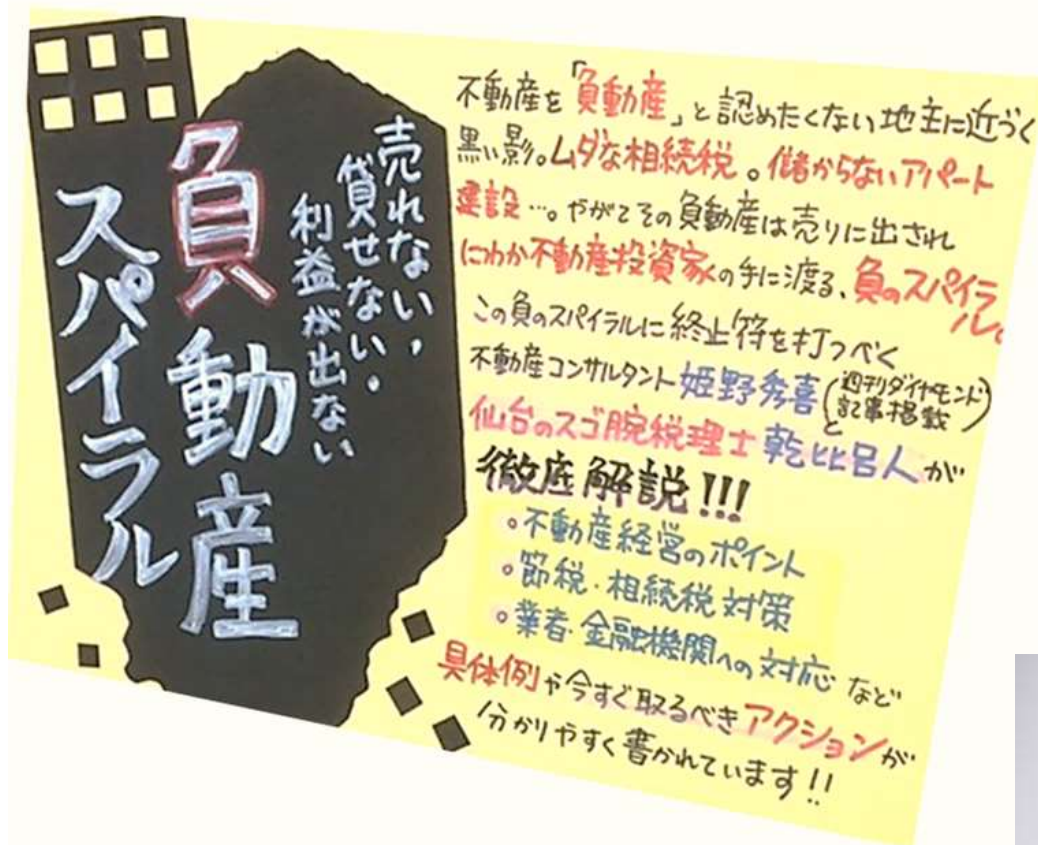 売れない、
貸せない、
利益が出ない
負動産
スパイラル
不動産を「負動産」と認めたくない地主に近づく
黒い影。ムダな相続税。儲からないアパート
建設…。やがてその負動産は売りに出され
にわか不動産投資家の手に渡る、負のスパイラ
ル。
この負のスパイラルに終止符を打つべく
不動産コンサルタント姫野秀喜(週刊ダイヤモンド
記事掲載)と
仙台のスゴ腕税理士 乾比呂人が
徹底解説!!!
。不動産経営のポイント
。節税・相続税対策
。業者・金融機関への対応 など
具体例や今すぐ取るべきアクションが
分かりやすく書かれています!!